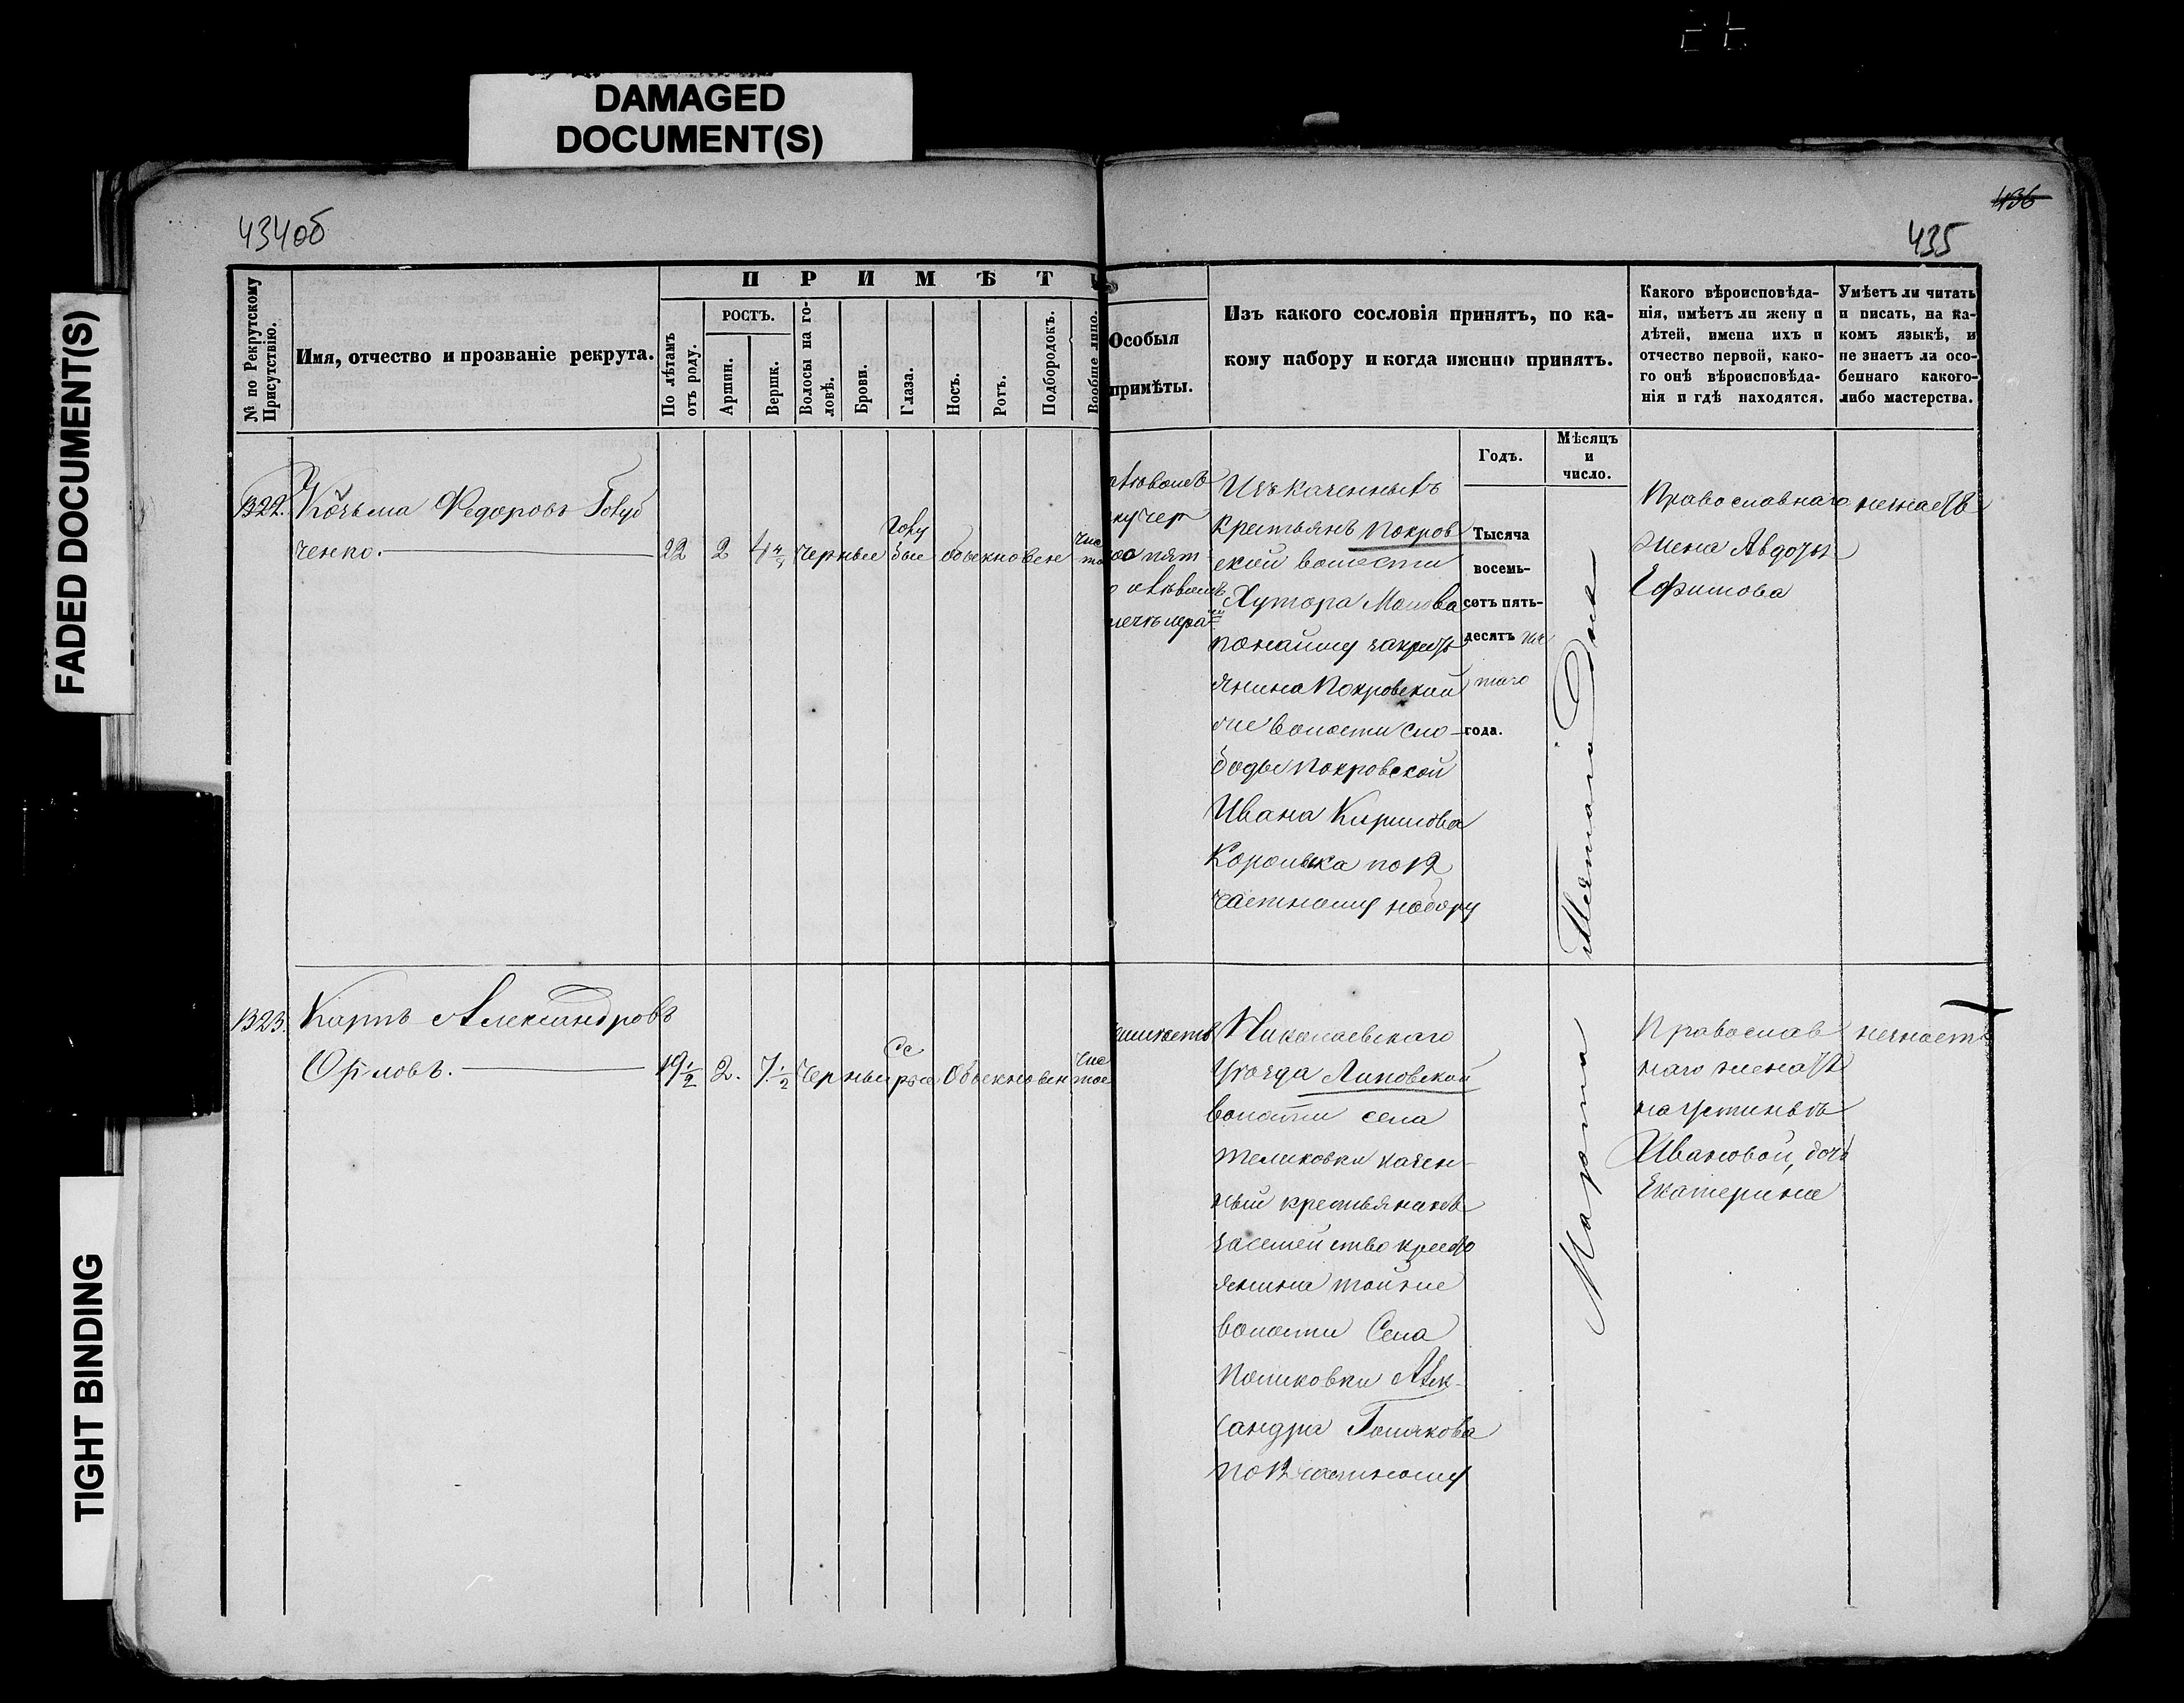 DAMAGED
DOCUMENT(S)
FADED DOCUMENT(S)
TIGHT BINDING
434об
436
435
№ по Рекрутскому Присутствію.
Имя, отчество и прозваніе рекрута.
П Р И М Ѣ Т
По лѣтамъ отъ роду.
РОСТЪ.
Аршин.
Вершк.
Волосы на головѣ.
Брови.
Глаза.
Носъ.
Ротъ.
Подбородокъ.
Вообще лицо.
Особыя
примѣты.
Изъ какого сословія принятъ, по ка-
кому набору и когда именно принятъ.
Годъ.
Мѣсяцъ
и
число.
Какого вѣроисповѣда-
нія, имѣетъ ли жену и
дѣтей, имена ихъ и
отчество первой, како-
го онѣ вѣроисповѣда-
нія и гдѣ находятся.
Умѣетъ ли читать
и писать, на ка-
комъ языкѣ, и
не знаетъ ли осо-
беннаго какого-
либо мастерства.
1322. Козьма Федоровъ Голуб
ченко.
22 2 черные Голу
бые обыкновен чис
то
Изъ казенныхъ
крестьянъ Покров
ской волости
Хутора
по найму за крестъ
янина Покровской
же волости сло-
боды Покровской
Ивана Кирилова
Королька по 12
частному набору
Тысяча
восемь-
сотъ пять-
десятъ пя
таго
года.
Православнаго
жена Авдотья
Ефимова
незнаетъ
Марта
1323. Карпъ Александровъ
Орловъ.
19 1/2 2. 7 1/2 Черные Се
рые Обыкновен Чис
тое
Николаевскаго
Уезда Липовской
волости села
казен-
ный крестьянинъ
за семейство кресть
янина той же
волости Села
Алек-
сандра
по 12 частному
Православ
наго женатъ
на Устиньѣ
Ивановой, дочь
Екатерина
незнаетъ